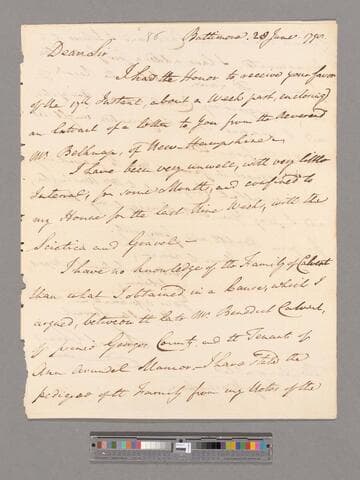 86 Baltimore. 28 June 1790.
Dear Sir
I had the Honor to receive your favor
of the 19th Instant, about a Week past, enclosing
an Extract of a letter to You from the Reverend
Mr. Belknap, of New Hampshire.
I have been very unwell, with very little
Interval, for some Months, and confined to
my House for the last Week, with the
Sciatica and Gravel –
I have no knowledge of the Family of Calvert
than what I obtained in a Cause, which I
argued, between the late Mr. Benedict Calvert,
of prince Georges County and the Tenants of
Ann Arundel Mannor – I have the
pedigree of the Family from my Notes of the